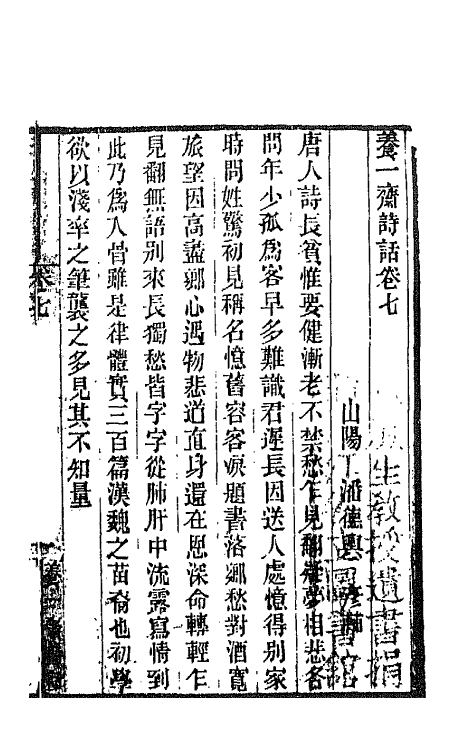 養一齋詩話卷七
山陽 潘德輿 彥輔
唐人詩長貧惟要健漸老不禁愁乍見翻疑夢相悲各
問年少孤爲客早多難識君遲長因送人處憶得別家
時問姓驚初見稱名憶舊容客淚題書落鄉愁對酒寬
旅望因高盡鄉心遇物悲道直身還在恩深命轉輕乍
見翻無語別來長獨愁皆字字從肺肝中流露寫情到
此乃爲入骨雖是律體實三百篇漢魏之苗裔也初學
欲以淺率之筆襲之多見其不知量
卷七